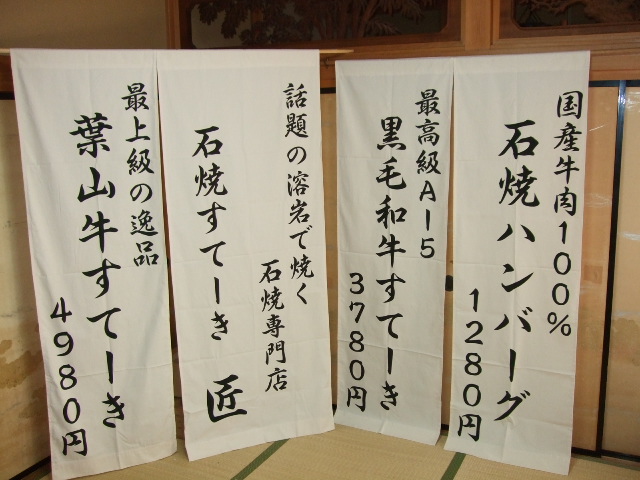 国産牛肉100%
石焼ハンバーグ
1280円
最高級A-5
黒毛和牛すてーき
3780円
話題の溶岩で焼く
石焼専門店
石焼すてーき 匠
最上級の逸品
葉山牛すてーき
4980円